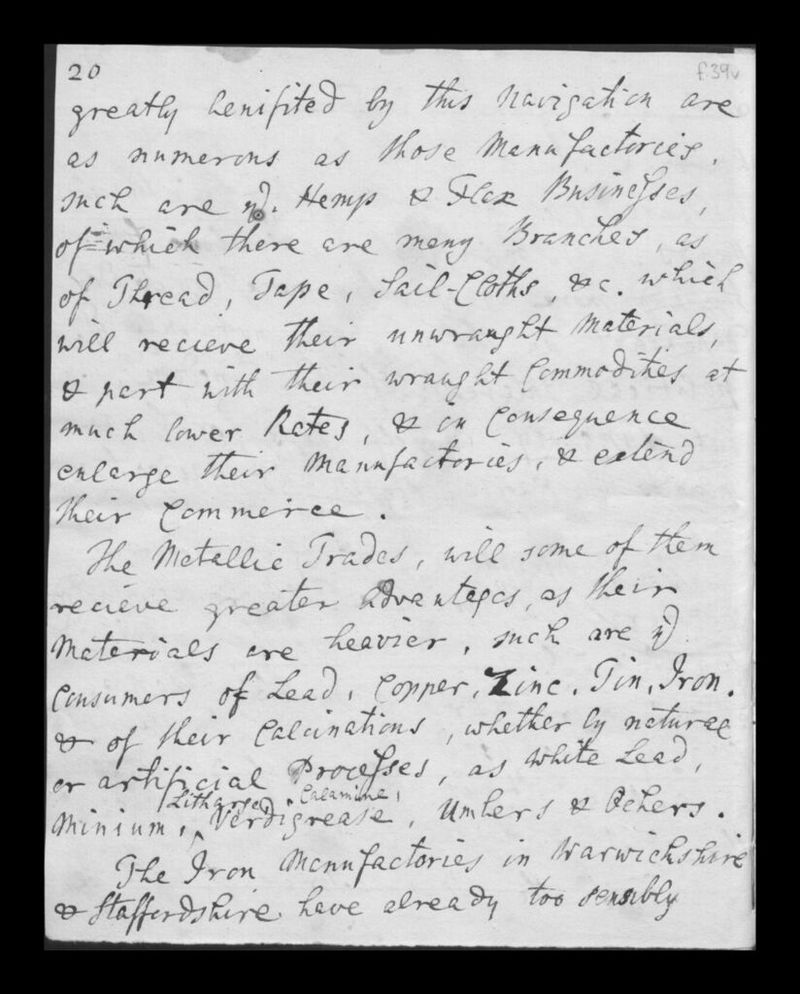 20
f.39v
greatly benifited by this Navigation are
as numerous as those Manufactories,
such are ye. Hemp & Flax Businesses,
of which there are many Branches, as
of Thread, Tape, Sail-Cloths, &c. which
will recieve their unwraught Materials,
& part with their wraught Commodities at
much lower Rates, & in Consequence
enlarge their Manufactories, & extend
their Commerce.
The Metallic Trades, will some of them
recieve greater Advantages, as their
Materials are heavier, such are ye
Consumers of Lead, Copper, Zinc, Tin, Iron.
& of their Calcinations, whether by natural
or artificial Processes, as White Lead,
Litharge, Calamine,
Minium, Verdigrease, Umbers & Ochers.
The Iron Manufactories in Warwickshire
& Staffordshire have already too sensibly